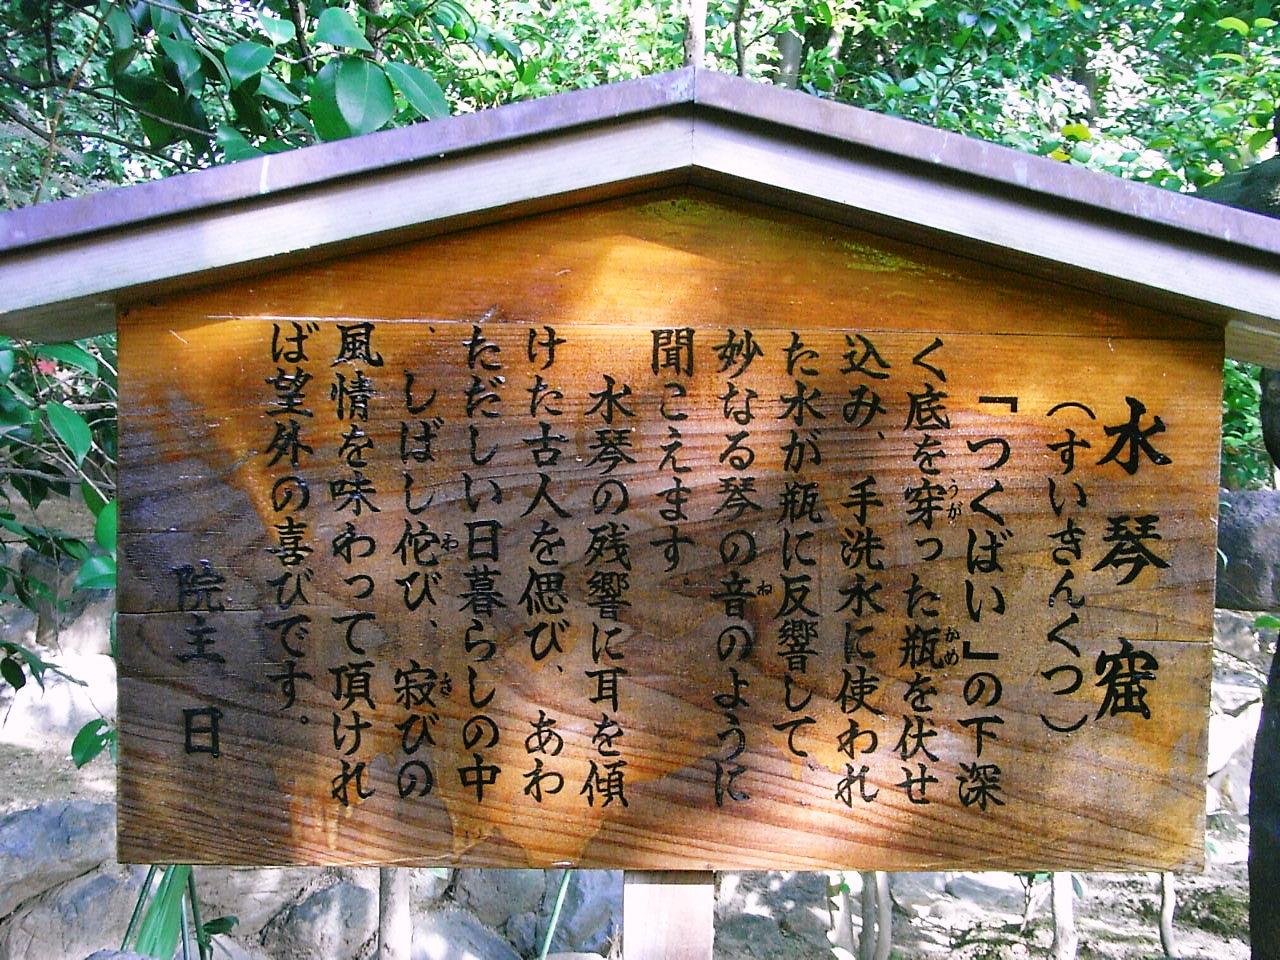 水琴窟
(すいきんくつ)
「つくばい」の下深
く底を穿った瓶を伏せ
込み、手洗水に使われ
た水が瓶に反響して、
妙なる琴の音のように
聞こえます。
水琴の残響に耳を傾
けた古人を偲び、あわ
ただしい日暮らしの中
、しばし侘び、寂びの
風情を味わって頂けれ
ば望外の喜びです。
院主 日